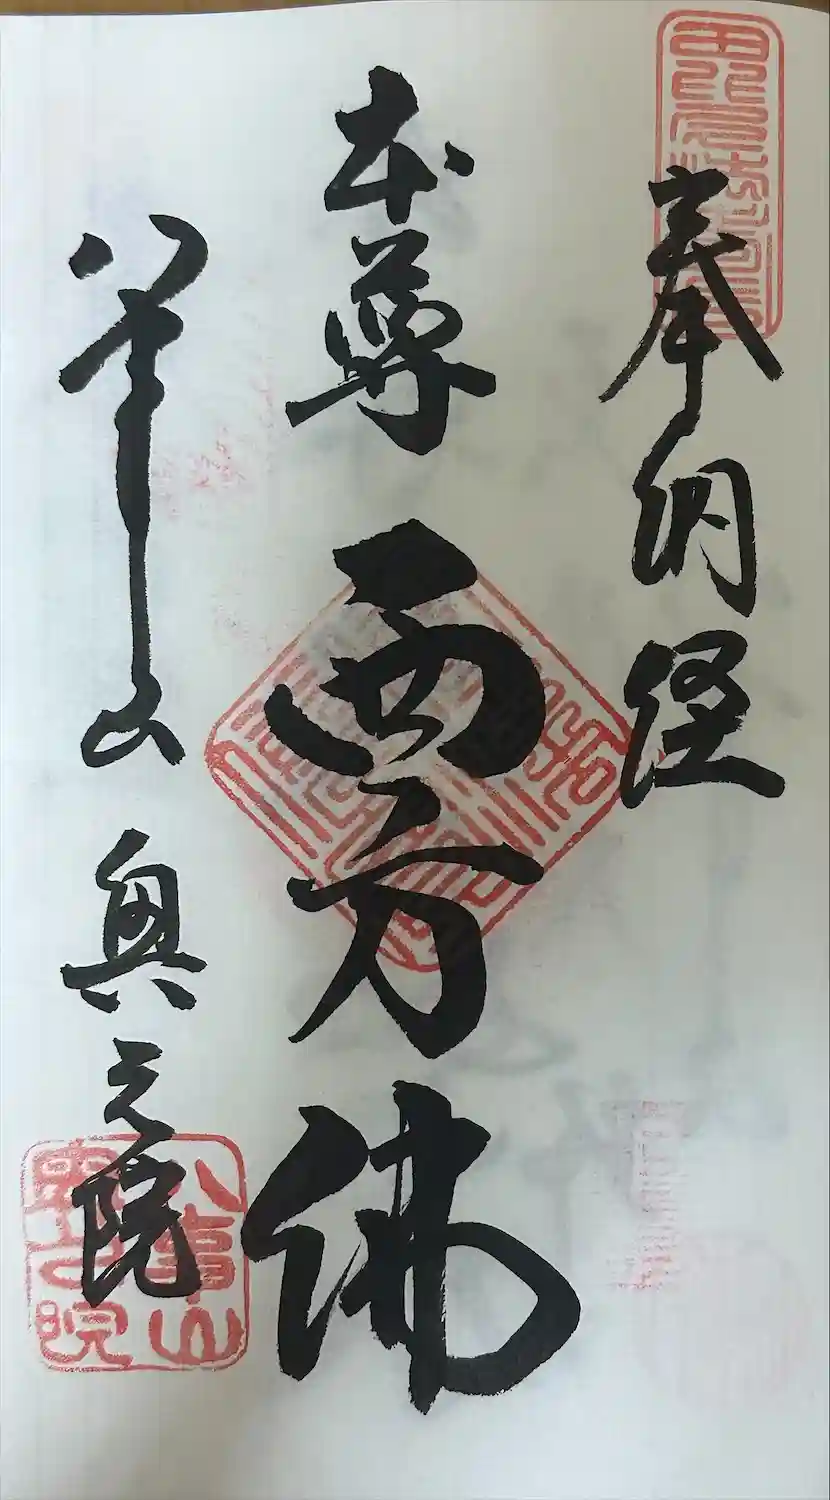 奉納経
本尊 西方佛
八事山 奥之院
八事山
奥之院